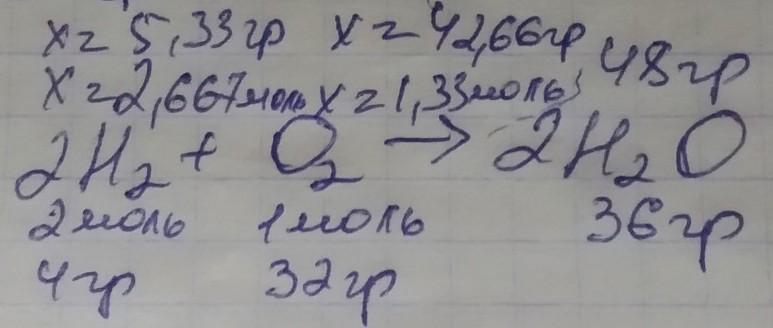 x = 5,33гр x = 42,66гр 48гр
x = 2,667моль x = 1,33моль
2H₂ + O₂ → 2H₂O
2моль 1моль 36гр
4гр 32гр